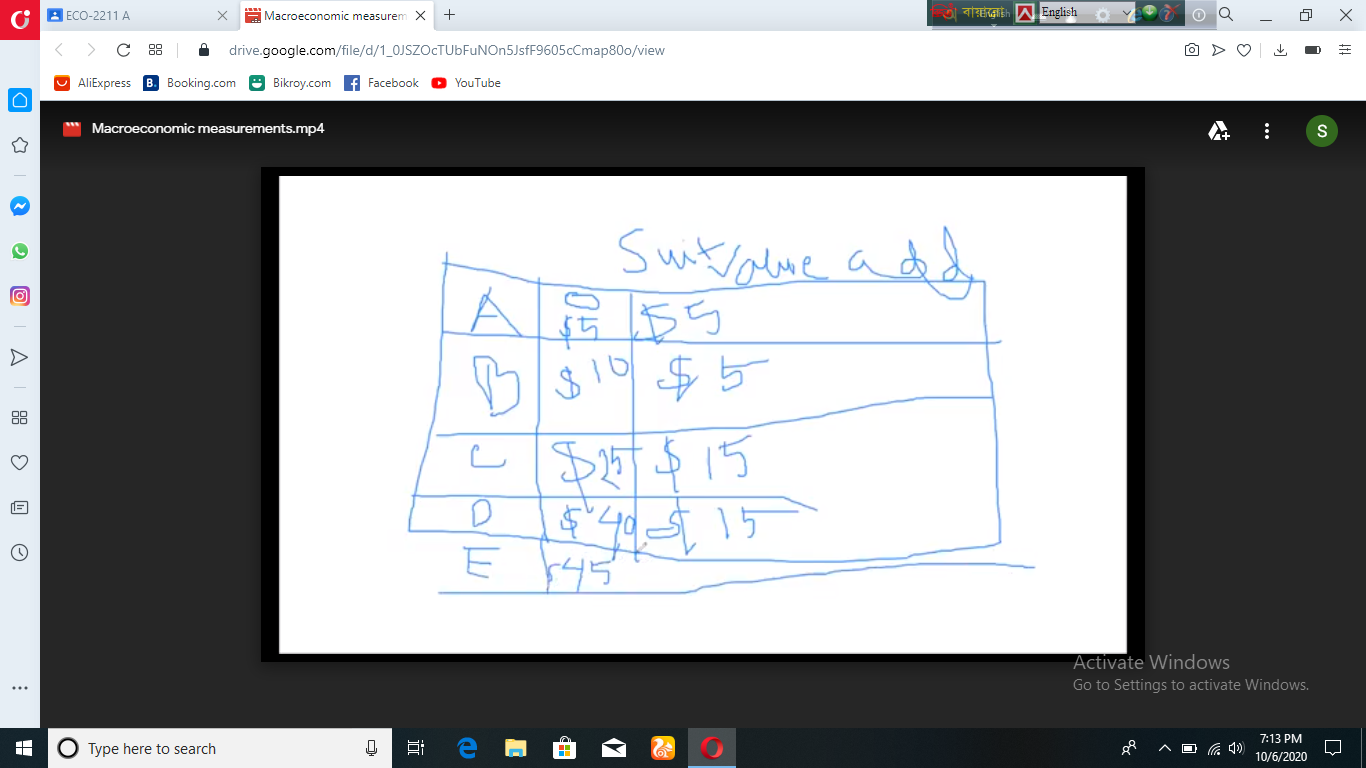 ECO-2211 A
Macroeconomic measurem
বায়ান্নো
English
English
drive.google.com/file/d/1_0JSZOcTUbFuNOn5JsfF9605cCmap80o/view
AliExpress B. Booking.com Bikroy.com Facebook YouTube
Macroeconomic measurements.mp4
S
Suit value add
A $5 $5
B $10 $5
C $25 $15
D $40 $15
E $45
Activate Windows
Go to Settings to activate Windows.
Type here to search
7:13 PM
10/6/2020